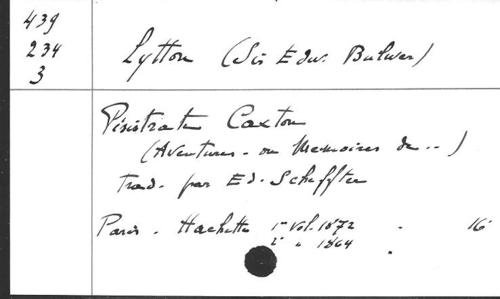 439
234
3
Lytton (Sir Edw. Bulwer)
Pisistrate Caxton
(Aventures - ou Memoires de ..)
trad. par Ed. Scheffter
Paris - Hachette 1er Vol. 1872 - 16°
2e " 1864 .